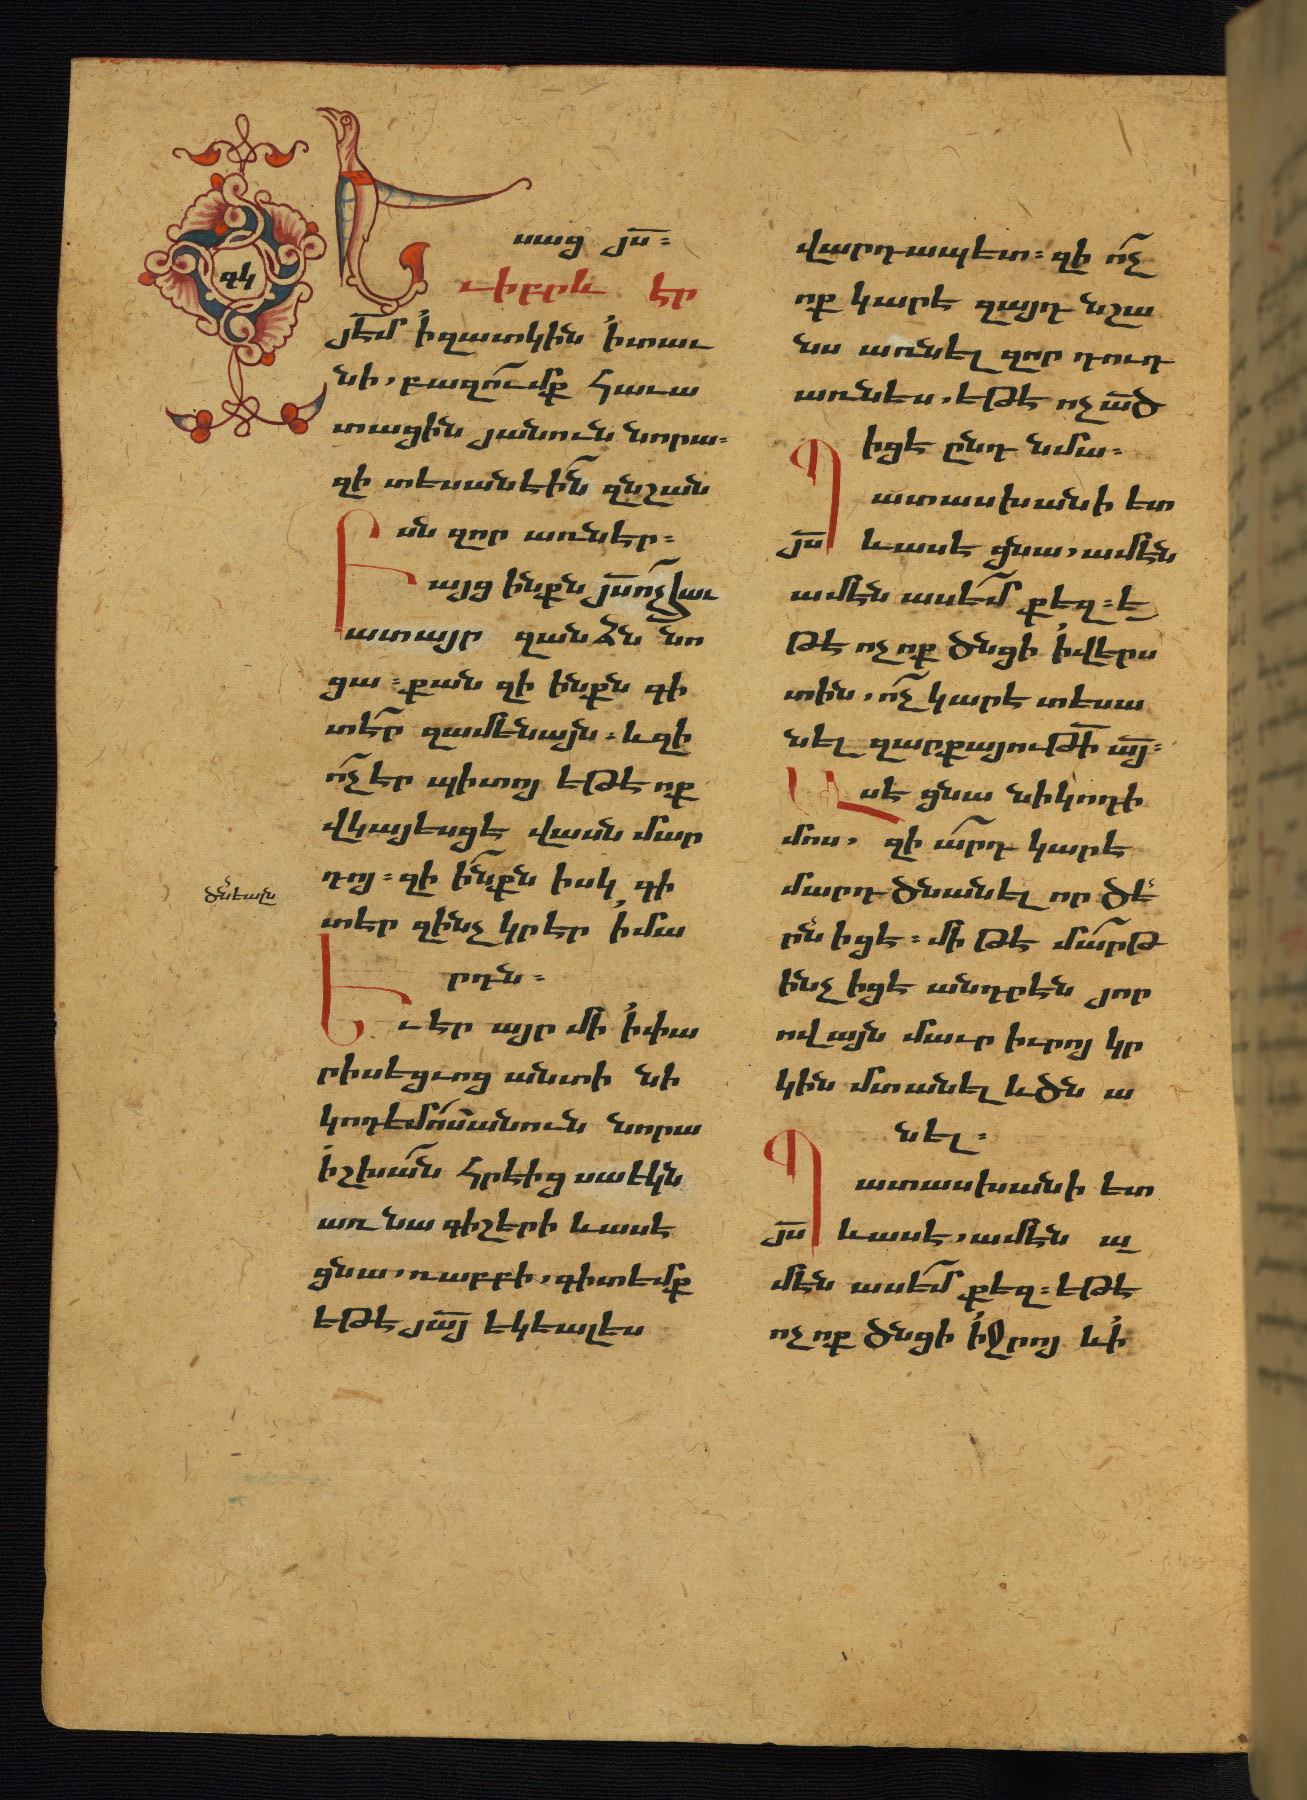 գկ
սաց յս։
Եւիբրև էր
յԷմ ի զատկին ի տաւ
նի, բազումք հաւա
տացին յանուն նորա։
զի տեսանէին զնշան
սն զոր առնէր։
Բայց ինքն յս ոչ հաւ
ատայր զանձն նո
ցա։ քան զի ինքն գի
տէր զամենայն։ և զի
ոչ էր պիտոյ եթե ոք
վկայեսցէ վասն մար
դոյ։ զի ինքն իսկ գի
տէր զինչ կրէր ի մա
րդն։
Եւ էր այր մի ի փա
րիսեցւոց անտի նի
կոդեմոս անուն նորա
իշխան հրէից սա եկն
առ նա գիշերի և ասէ
ցնա, ռաբբի, գիտեմք
եթե յայ եկեալ ես
վարդապետ։ զի ոչ
ոք կարէ զայդ նշա
նս առնել զոր դուդ
առնես, եթե ոչ ած
իցէ ընդ նմա։
Պատասխանի ետ
յս և ասէ ցնա, ամէն
ամէն ասեմ քեզ։ ե
թե ոչ ոք ծնցի ի վերս
տին, ոչ կարէ տեսա
նել զարքայութի այ։
Ասէ ցնա նիկոդի
մոս, զի արդ կարէ
մարդ ծնանել որ ծե
րն իցէ։ մի թե մարթ
ինչ իցէ անդրէն յոր
ովայն մաւր իւրոյ կր
կին մտանել և ծն ա
նել։
Պատասխանի ետ
յս և ասէ, ամէն ա
մէն ասեմ քեզ։ եթե
ոչ ոք ծնցի ի ջրոյ և ի